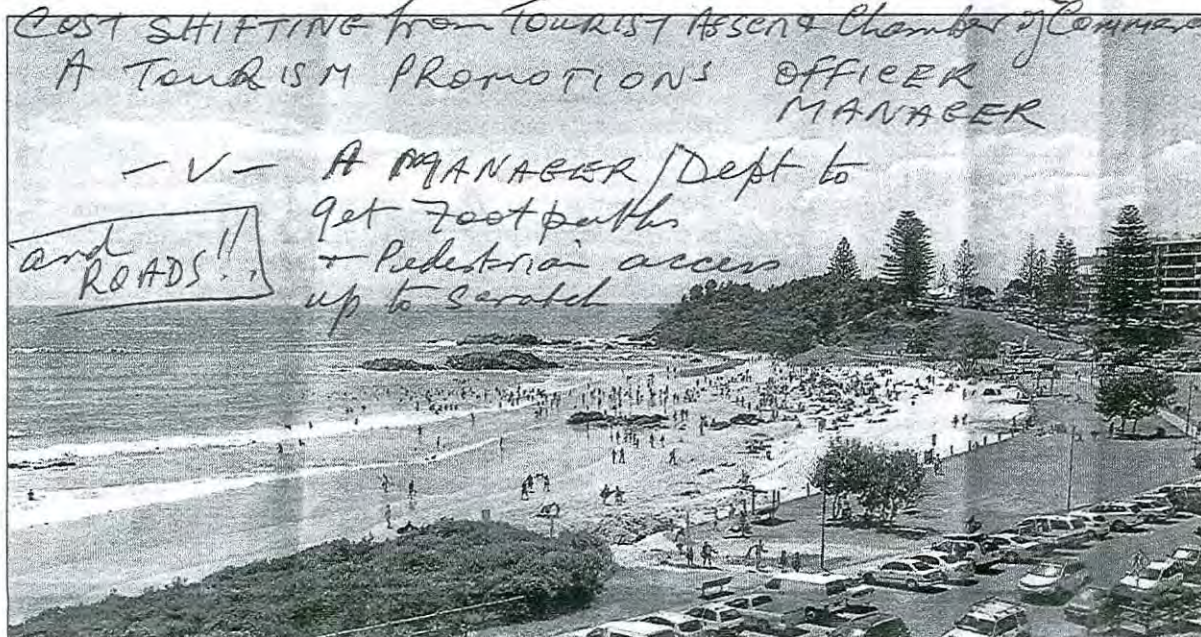 COST SHIFTING from TOURIST ASSCN & Chamber of Commer
A TOURISM PROMOTIONS OFFICER
MANAGER
- V - A MANAGER / Dept to
get Footpaths
and + Pedestrian access
ROADS!! up to scratch